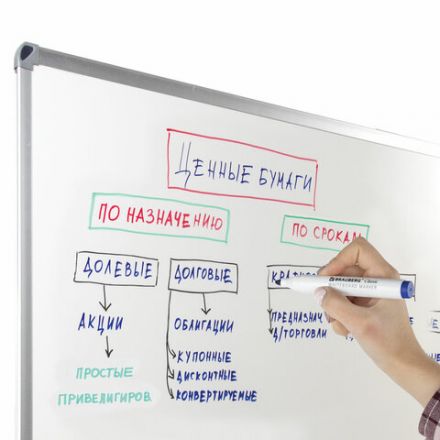 ЦЕННЫЕ БУМАГИ
ПО НАЗНАЧЕНИЮ
ПО СРОКАМ
ДОЛЕВЫЕ
ДОЛГОВЫЕ
АКЦИИ
ПРОСТЫЕ
ПРИВЕЛИГИРОВ.
ОБЛИГАЦИИ
КУПОННЫЕ
ДИСКОНТНЫЕ
КОНВЕРТИРУЕМЫЕ
ПРЕДНАЗНАЧ
Д/ТОРГОВЛИ
BRAUBERG
WHITEBOARD MARKER